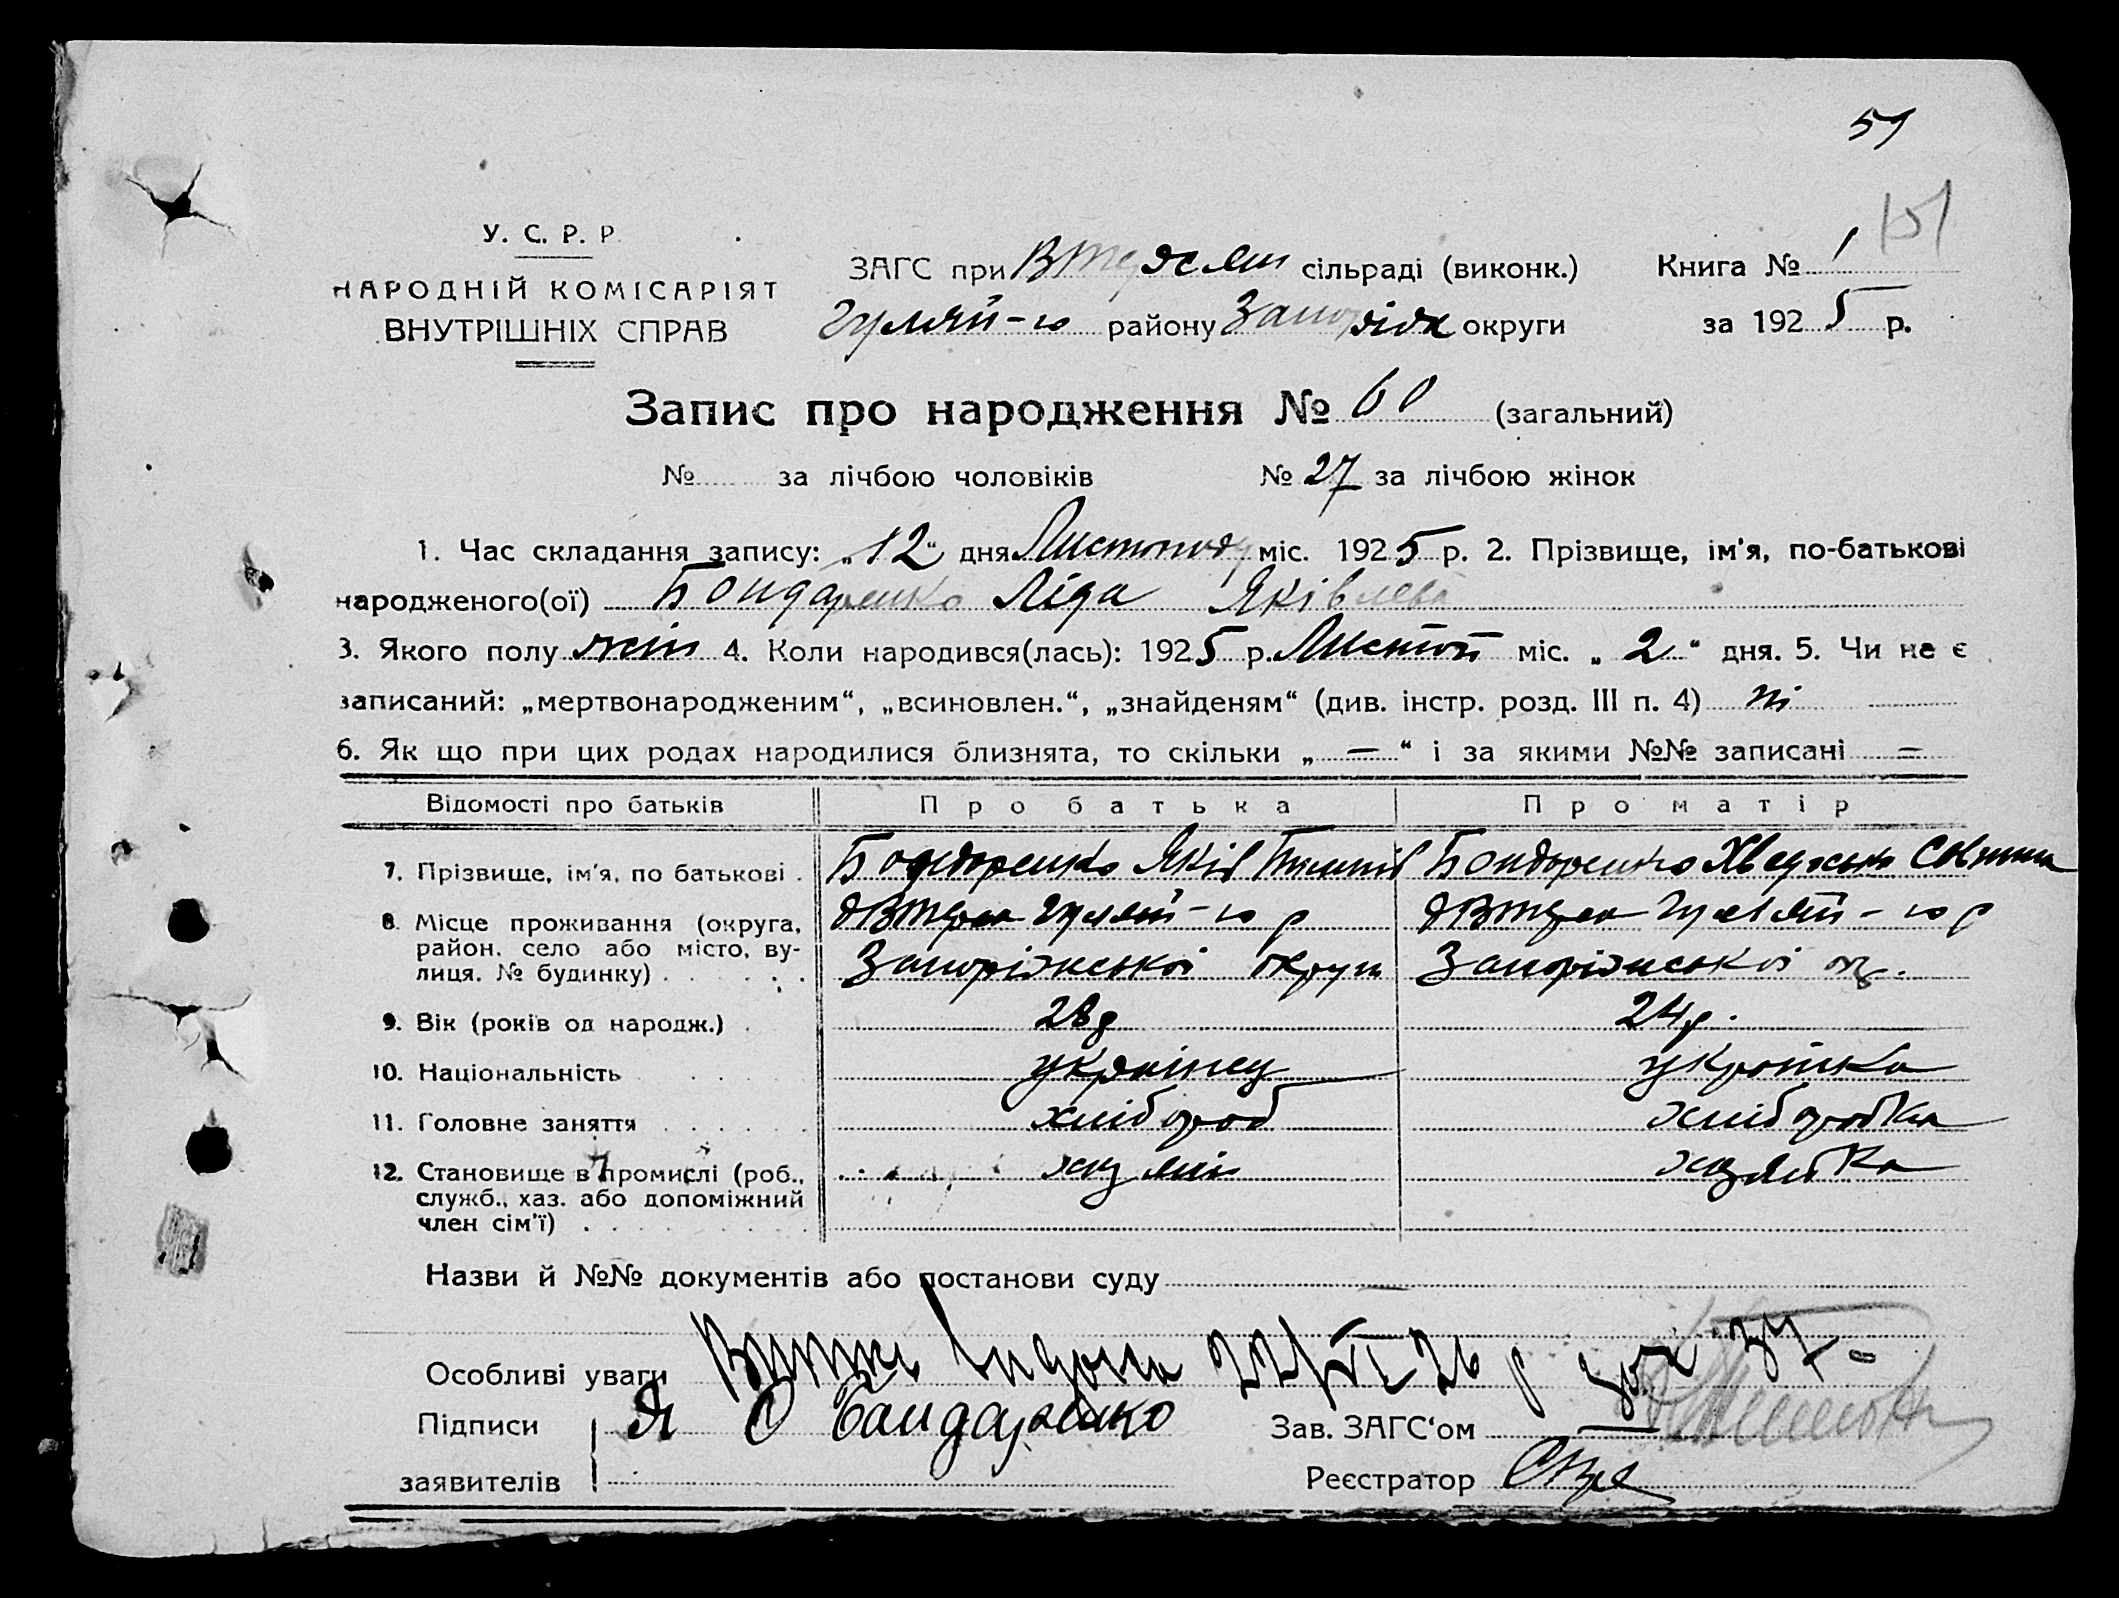 59
151
У. С. Р. Р.
НАРОДНІЙ КОМІСАРІЯТ
ВНУТРІШНІХ СПРАВ
ЗАГС при сільраді (виконк.)
Гуляй-ю району Запоріж округи
Книга № 1
за 1925 р.
Запис про народження № 60 (загальний)
№ за лічбою чоловіків № 27 за лічбою жінок
1. Час складання запису: „12" дня Листопаду міс. 1925 р. 2. Прізвище, ім'я, по-батькові
народженого(ої) Бондаренко Ліда Яківлева
3. Якого полу жін 4. Коли народився(лась): 1925 р. Листоп міс. „2" дня. 5. Чи не є
записаний: „мертвонародженим", „всиновлен.", „знайденям" (див. інстр. розд. III п. 4) ні
6. Як що при цих родах народилися близнята, то скільки „ = " і за якими №№ записані =
Відомості про батьків Про батька Про матір
7. Прізвище, ім'я, по батькові . Бондаренко Яків Бондаренко
8. Місце проживання (округа, район, село або місто, вулиця, № будинку) . Гуляй-ю р Запоріжської округи Гуляй-ю р Запоріжської ок.
9. Вік (років од народж.) . 28 р 24 р.
10. Національність українец українка
11. Головне заняття хлібороб хліборобка
12. Становище в промислі (роб., служб., хаз. або допоміжний член сім'ї) . хазяін хазяйка
Назви й №№ документів або постанови суду
Особливі уваги 26 р 37 -
Підписи Я О Бандаренко Зав. ЗАГС'ом
заявителів Реєстратор